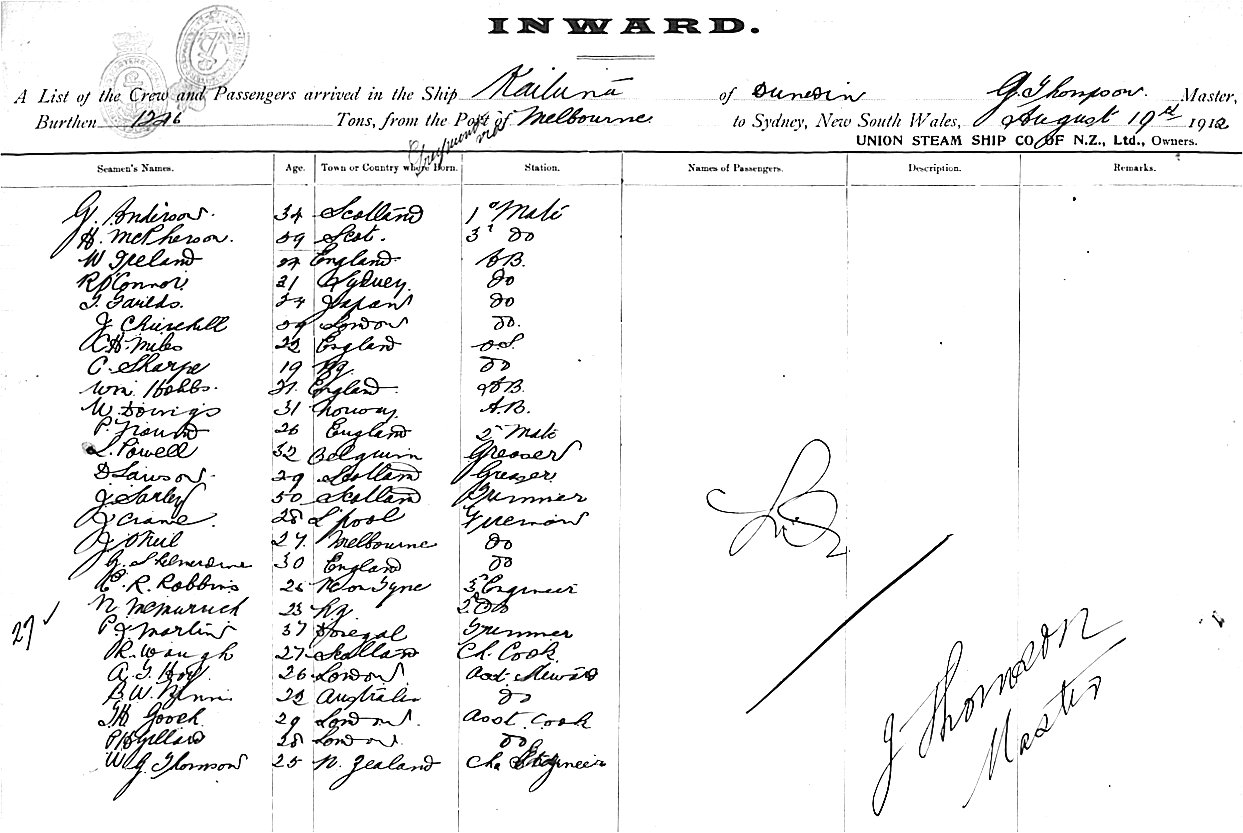 INWARD.
A List of the Crew and Passengers arrived in the Ship Kaituna of Dunedin G. Thompson Master,
Burthen 1246 Tons, from the Port of Melbourne to Sydney, New South Wales, August 19th 1912
Greymouth via
UNION STEAM SHIP CO OF N.Z., Ltd., Owners.
Seamen's Names. Age. Town or Country where Born. Station. Names of Passengers. Description. Remarks.
G. Anderson. 34 Scotland 1° Mate
H. McPherson. 59 Scot. 3° do
W Ireland England AB.
R O'Connor 21 Sydney. do
34 Japan do
J Churchill 59 London do.
C H. Miles 22 England O.S.
C. Sharpe 19 do
Wm. Hobbs. 21 England AB.
W 31 Norway A.B.
P. 26 England 2° Mate
L. Powell 32 Belguim Greaser
D Lawson 29 Scotland Greaser
J. 50 Scotland Trimmer
J Crane. 28 L'pool Fireman
J O'Neil 27. Melbourne do
30 England do
R. Robbins 26 N on Tyne 3° Engineer
N McMurrich 23 2° Do
27 ✓
P J Martin 37 Donegal Trimmer
R. Waugh 27 Scotland Ch. Cook
A. J. 26 London Asst. Steward
B. W. 22 Australia do
Gooch 29 London. Asst. Cook
Gillard 28 London. do
W G. Thomson 25 N. Zealand Engineer
J Thomson
Master